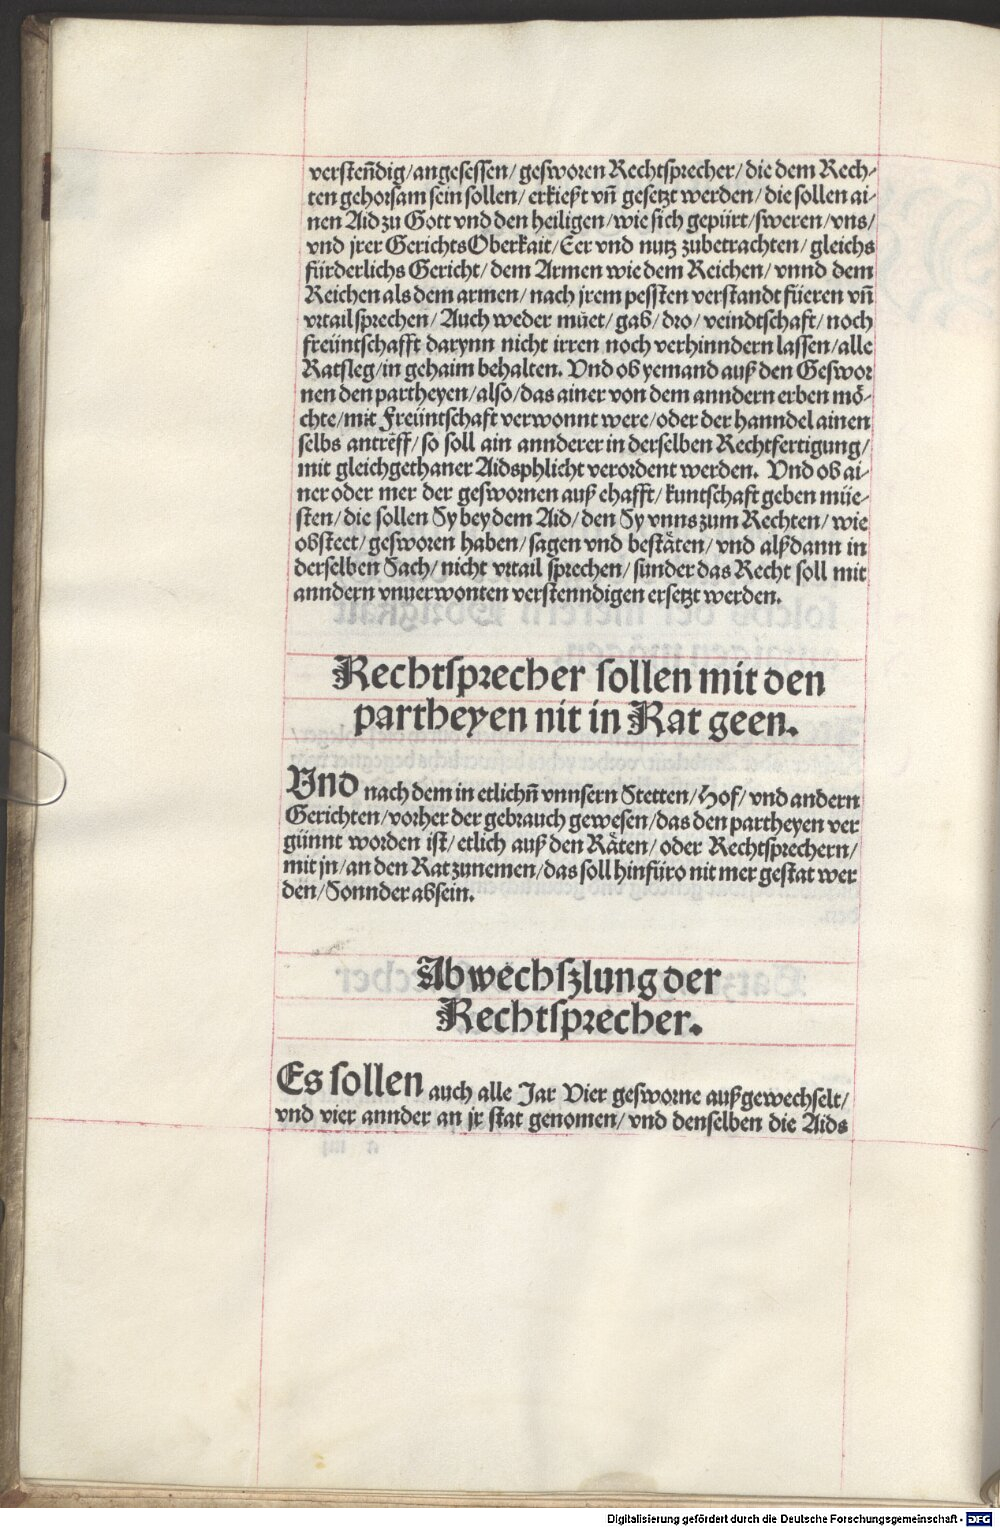 verstenñdig/angesessen/gesworen Rechtsprecher/die dem Rech-
ten gehorsam sein sollen/erkießt vñ gesetzt werden/die sollen ai-
nen Aid zu Gott vnd den heiligen/wie sich gepürt/sweren/vns/
vnd jrer GerichtsOberkait/Eer vnd nutz zubetrachten/gleichs
fürderlichs Gericht/dem Armen wie dem Reichen/vnnd dem
Reichen als dem armen/nach jrem pessten verstandt füeren vñ
vrtail sprechen/Auch weder müet/gab/dro/veindtschaft/noch
freüntschafft darynn nicht irren noch verhinndern lassen/alle
Ratsleg/in gehaim behalten. Vnd ob yemand auß den Geswor
nen den partheyen/also/das ainer von dem anndern erben mö-
chte/mit Freüntschaft verwonnt were/oder der hanndel ainen
selbs antreff/so soll ain annderer in derselben Rechtfertigung/
mit gleichgethaner Aidsphlicht verordent werden. Vnd ob ai-
ner oder mer der geswornen auß ehafft/kuntschaft geben müe-
sten/die sollen Sy bey dem Aid/den Sy vnns zum Rechten/wie
obsteet/gesworen haben/sagen vnd bestäten/vnd alßdann in
derselben Sach/nicht vrtail sprechen/sunder das Recht soll mit
anndern vnuerwonten verstenndigen ersetzt werden.
Rechtsprecher sollen mit den
partheyen nit in Rat geen.
Vnd nach dem in etlichñ vnnsern Stetten/Hof/vnd andern
Gerichten/vorher der gebrauch gewesen/das den partheyen ver
günnt worden ist/etlich auß den Räten/oder Rechtsprechern/
mit jn/an den Rat zunemen/das soll hinfüro nit mer gestat wer
den/Sonnder absein.
Abwechszlung der
Rechtsprecher.
Es sollen auch alle Jar Vier gesworne außgewechselt/
vnd vier annder an jr stat genomen/vnd denselben die Aids
Digitalisierung gefördert durch die Deutsche Forschungsgemeinschaft - DFG